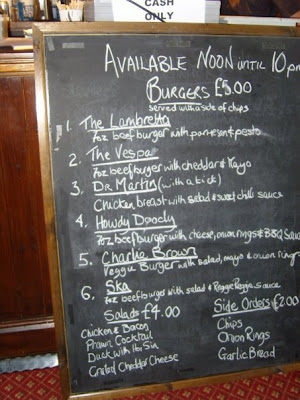 CASH
ONLY
AVAILABLE NOON UNTIL 10pm
BURGERS £5.00
Served with a side of chips
1. The Lambretta
7oz beefburger with parmesan & pesto
2. The Vespa
7oz beefburger with cheddar & Mayo
3. DR. Martin (with a kick)
Chicken breast with salad & sweet chilli sauce
4. Howdy Doody
7oz beefburger with cheese, onion rings & BBQ Sauce
5. Charlie Brown
Veggie Burger with salad, mayo & onion rings
6. Ska
7oz beefburger with salad & Reggae Reggae Sauce
Salads £4.00
Chicken & Bacon
Prawn Cocktail
Duck with Hoi Sin
Grated Cheddar Cheese
Side Orders £2.00
Chips
Onion Rings
Garlic Bread